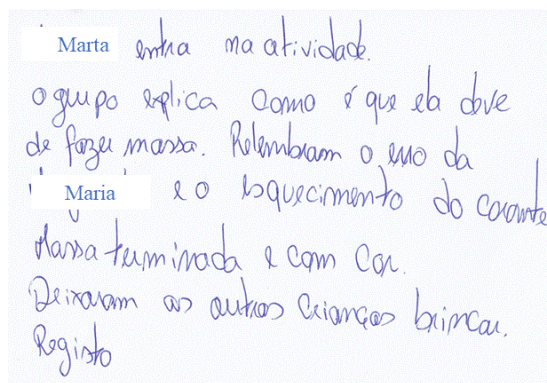 Marta entra na atividade.
o grupo explica como é que ela deve
de fazer massa. Relembram o erro da
Maria e o esquecimento do corante
Massa terminada e com cor.
Deixaram as outras crianças brincar.
Registo